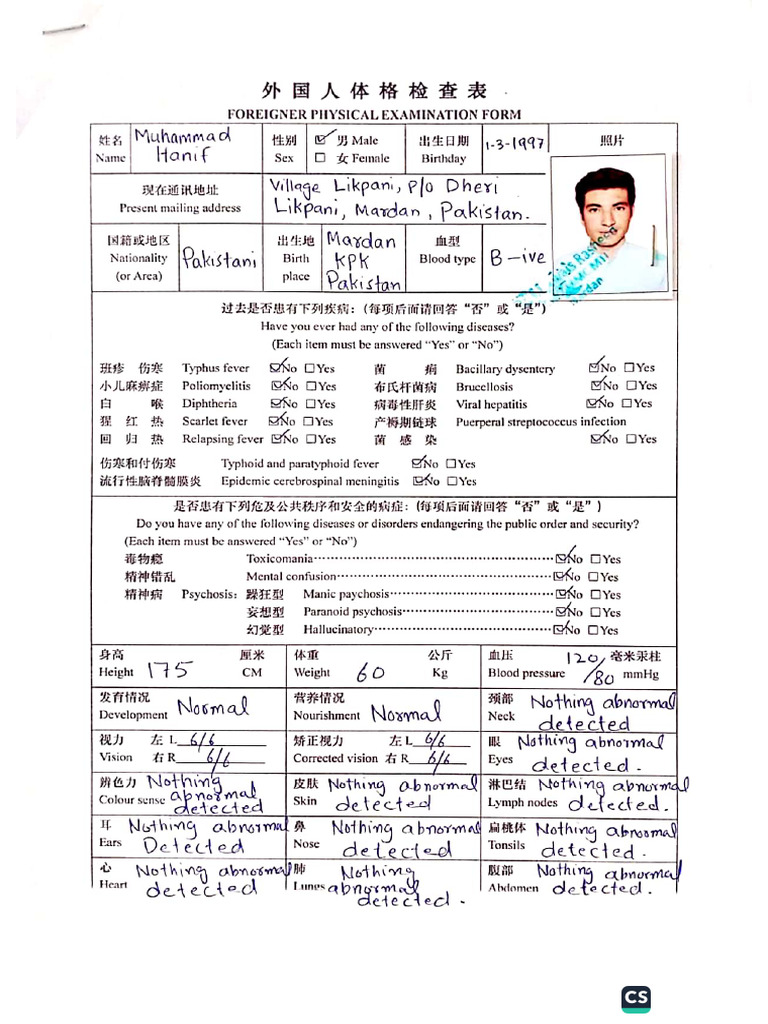 外国人体格检查表
FOREIGNER PHYSICAL EXAMINATION FORM
姓名 Name Muhammad Hanif
性别 Sex ☑ 男 Male ☐ 女 Female
出生日期 Birthday 1-3-1997
照片
现在通讯地址 Present mailing address
Village Likpani, P/o Dheri
Likpani, Mardan, Pakistan.
国籍或地区 Nationality (or Area) Pakistani
出生地 Birth place Mardan KPK Pakistan
血型 Blood type B-ive
Mardan
过去是否患有下列疾病：(每项后面请回答“否”或“是”)
Have you ever had any of the following diseases?
(Each item must be answered “Yes” or “No”)
班疹 伤寒 Typhus fever ☑No ☐Yes 菌 痢 Bacillary dysentery ☑No ☐Yes
小儿麻痹症 Poliomyelitis ☑No ☐Yes 布氏杆菌病 Brucellosis ☑No ☐Yes
白 喉 Diphtheria ☑No ☐Yes 病毒性肝炎 Viral hepatitis ☑No ☐Yes
猩 红 热 Scarlet fever ☑No ☐Yes 产褥期链球 Puerperal streptococcus infection
回 归 热 Relapsing fever ☑No ☐Yes 菌 感 染 ☑No ☐Yes
伤寒和付伤寒 Typhoid and paratyphoid fever ☑No ☐Yes
流行性脑脊髓膜炎 Epidemic cerebrospinal meningitis ☑No ☐Yes
是否患有下列危及公共秩序和安全的病症：(每项后面请回答“否”或“是”)
Do you have any of the following diseases or disorders endangering the public order and security?
(Each item must be answered “Yes” or “No”)
毒物瘾 Toxicomania ☑No ☐Yes
精神错乱 Mental confusion ☑No ☐Yes
精神病 Psychosis: 躁狂型 Manic paychosis ☑No ☐Yes
妄想型 Paranoid psychosis ☑No ☐Yes
幻觉型 Hallucinatory ☑No ☐Yes
身高 Height 175 厘米 CM
体重 Weight 60 公斤 Kg
血压 Blood pressure 120/80 毫米汞柱 mmHg
发育情况 Development Normal
营养情况 Nourishment Normal
颈部 Neck Nothing abnormal detected
视力 Vision 左 L 6/6 右 R 6/6
矫正视力 Corrected vision 左 L 6/6 右 R 6/6
眼 Eyes Nothing abnormal detected.
辨色力 Colour sense Nothing abnormal detected
皮肤 Skin Nothing abnormal detected
淋巴结 Lymph nodes Nothing abnormal detected.
耳 Ears Nothing abnormal Detected
鼻 Nose Nothing abnormal detected
扁桃体 Tonsils Nothing abnormal detected.
心 Heart Nothing abnormal detected
肺 Lungs Nothing abnormal detected.
腹部 Abdomen Nothing abnormal detected.
CS